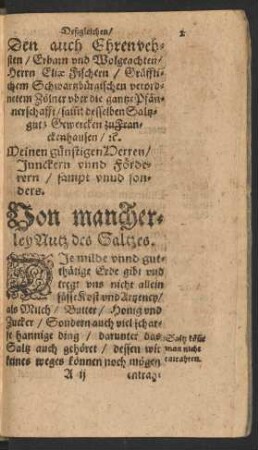 Deßgleichen/
Den auch Ehrenveh-
sten / Erbarn und Wolgeachten/
Herrn Eliæ Fischern / Gräffli-
chem Schwartzbürgischen verord-
netem Zölner vber die gantze Pfän-
nerschafft / sampt desselben Saltz-
guts Gewercken zu Fran-
ckenhausen / ꝛc.
Meinen günstigen Herren/
Junckern vnnd Förde-
rern / sampt vnnd son-
ders.
Von mancher-
ley Nutz des Saltzes.
DIe milde vnnd gut-
thätige Erde gibt vnd
tregt vns nicht allein
süsse Kost vnd Artzney/
als Milch / Butter / Honig vnd
Zucker / Sondern auch viel scharf-
fe hannige ding / darunter das
Saltz auch gehöret / dessen wir
keines weges können noch mögen
Saltz kan
man nicht
entrahten.
A ij
entrah-